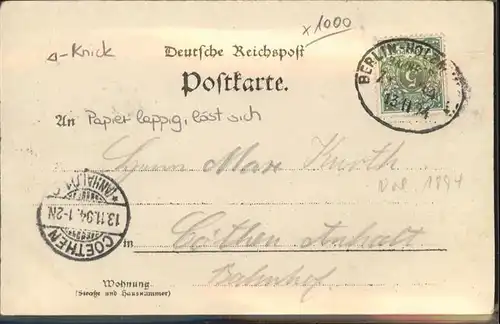 x 1000
Knick
Deutsche Reichspost
Postkarte.
BERLIN-HOF
13.11.94
An Papier lappig, löst sich
Herrn Max Knoth
Vos. 1894
(ANHALT)
13.11.94.1-2N
COETHEN
in Cöthen Anhalt
Bahnhof
Wohnung
(Straße und Hausnummer)